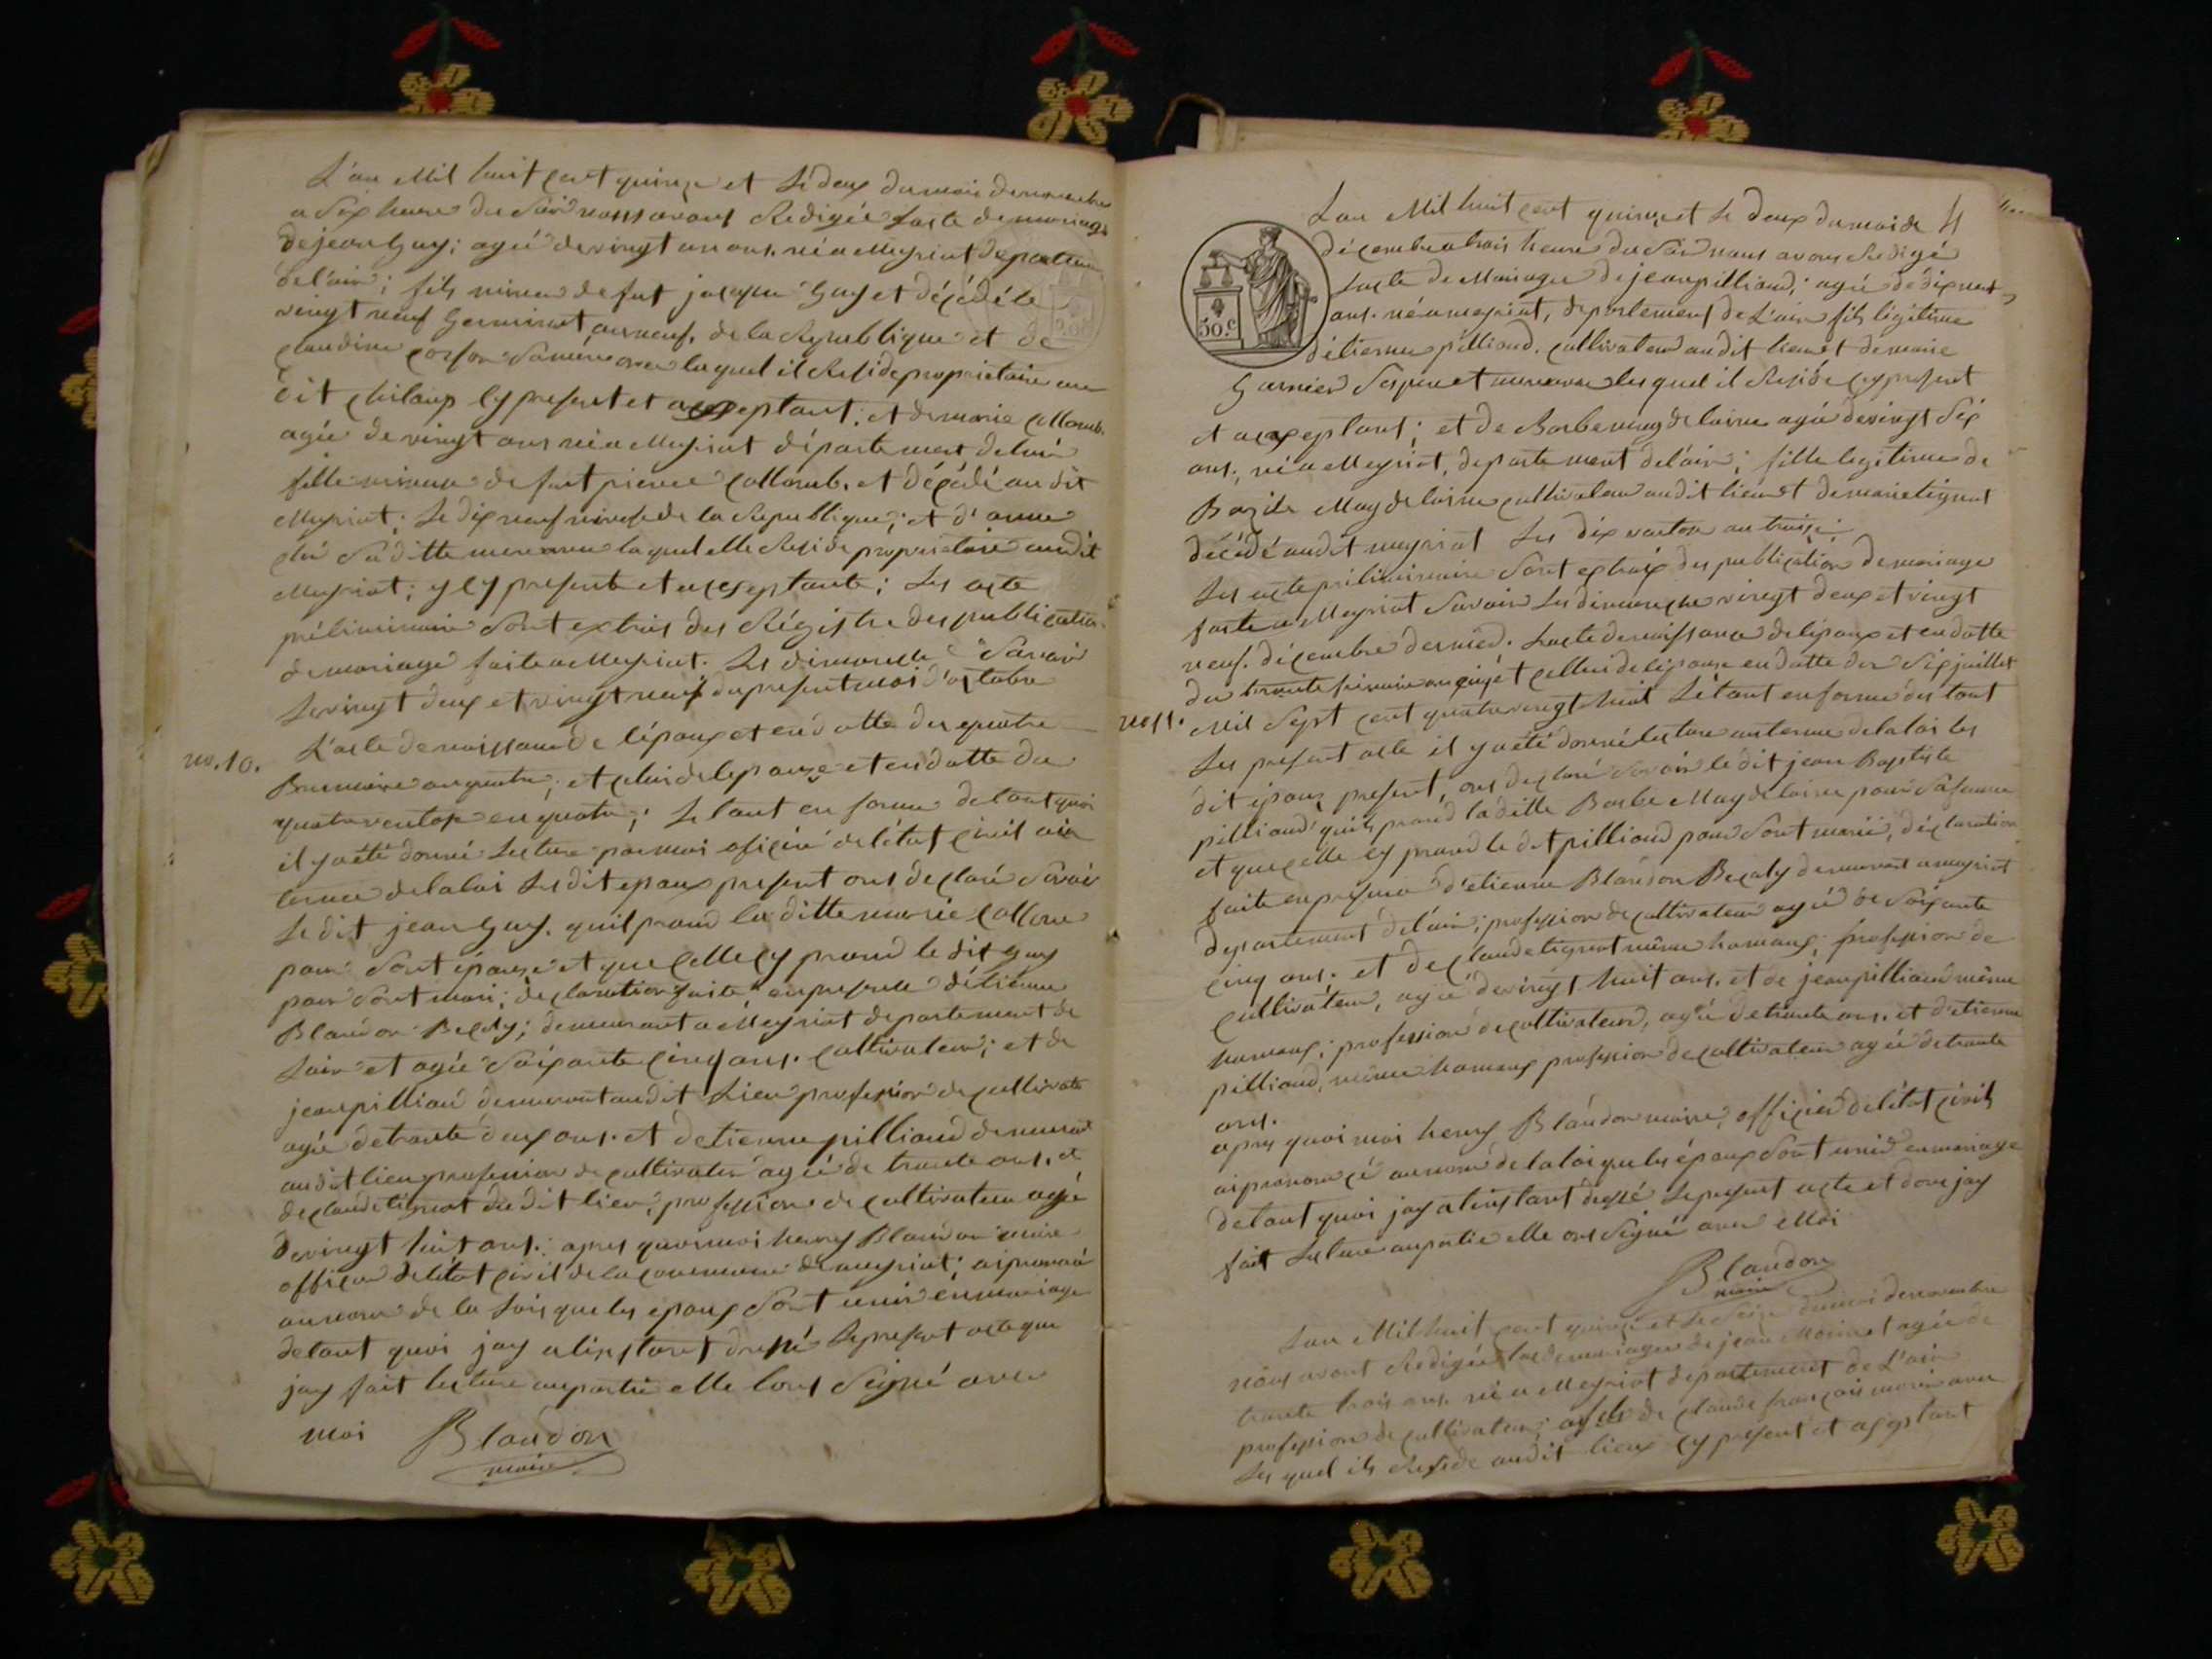 L'an Mil huit cent quinze et le deux du mois de novembre
a Six heure du Soir nous avons Redigée l'acte de mariage
de jean Guy; agée de vingt un ans. né a Meyriat departement
de l'ain; fils mineur de fut jacque Guy et décédé le
vingt neuf Germinal an neuf, de la Republique et de
Claudine Sa mere avec laquel il Reside propriétaire au
dit cy present et acceptant; et de marie Collomb
agée de vingt ans né a Meyriat département de l'ain
fille mineur de fut pierre Collomb. et décédé au dit
Meyriat; le dix neuf nivose de la Republique; et d'anne
Sa ditte mere avec laquel elle Reside proprietaire au dit
Meyriat; y cy presente et acceptante; Les acte
préliminaire Sont extrais des Régistre des publication
de mariage faite a Meyriat. Les dimanche Savoir
Le vingt deux et vingt neuf du present moi d'octobre
no. 10. L'acte de naissance de l'époux et en datte du quatre
Brumaire an quatre; et celui de l'epouze et en datte du
quatre ventose en quatre; Le tout en forme de tout quoi
il y a été donné lecture par moi oficié de l'état civil au
terme de la loi Les dit epoux present ont declaré Savoir
Le dit jean Guy. quil prand la ditte marie Collom
pour Sont épouze et que celle cy prand le dit Guy
pour Sont mari; déclaration faite en presence d'étienne
Blandon Becaty; demeurant a Meyriat departement de
Lain et agée Soixante cinq ans. cultivateur; et de
jean pilliaud demeurant au dit Lieu profession de cultivate
agée de trante deux ans. et d'etienne pilliaud demeurant
au dit lieu profession de cultivateur agée de trante ans. et
de claude tignat du dit lieu; profession de cultivateur agée
de vingt huit ans.; apres quoi moi henry Blandon maire
officier de l'état civil de la commune de meyriat; ai prononcé
au nom de la Loi que les epoux Sont unis en mariage
de tout quoi jay a linstant dressé Le present acte que
jay fait lecture au partie elle l'ons Signé avec
moi Blandon
maire
L'an Mil huit cent quinze et le deux du moi de 4
décembre a trois heure du Soir nous avons Redigé
Lacte de Mariage de jean pilliaud; agée de dix neuf
ans. né a meyriat, departement de L'ain fils légitime
d'étienne pilliaud. cultivateur au dit lieu et de marie
30.C
Garnier Ses pere et mere avec les quel il Reside cy present
et acceptant; et de Barbe magdelaine agée de vingt Six
ans, né a Meyriat, departement de l'ain; fille legitime de
Bazile Magdelaine cultivateur au dit lieu et de marie tignat
décédé au dit meyriat Les dix ventose an treize;
Les acte préliminaire Sont extraix des publication de mariage
faite a Meyriat Savoir Les dimanche vingt deux et vingt
neuf. décembre dernier. Lacte de naissance de l'époux et en datte
du trante frimaire an cinq et cellui de l'épouse en datte du Six juillet
no 11. Mil Sept cent quatre vingt huit Le tout en forme des tout
Les present acte il y a été donné lecture au terme de la loi les
dit époux present, ont declaré Savoir le dit jean Baptiste
pilliaud quils prand la ditte Barbe Magdelaine pour Sa femme
et que celle cy prand le dit pilliaud pour Sont marié, déclaration
faite en presence d'etienne Blandon Becaty demeurant a meyriat
departement de l'ain; profession de cultivateur agée de Soixante
cinq ans. et de claude tignat même hameaux; profession de
cultivateur, agée de vingt huit ans. et de jean pilliaud même
hameaux; profession de cultivateur, agée de trante ans. et d'etienne
pilliaud, même hameaux profession de cultivateur agée de trante
ans.
apres quoi moi henry Blandon maire, officier de l'état civils
ai prononcé au nom de la loi que les époux Sont unis en mariage
de tout quoi jay a linstant dressé Le present acte et dont jay
fait Lecture au partie elle ont Signé avec Moi
Blandon
maire
L'an Mil huit cent quinze et le Seize du moi de novembre
nous avont Redigée lacte de mariage de jean Morin et agée de
trante trois ans. né a Meyriat departement de L'ain
profession de cultivateur; fils de claude françois morin avec
Les quel ils Reside au dit lieux cy present et aceptant